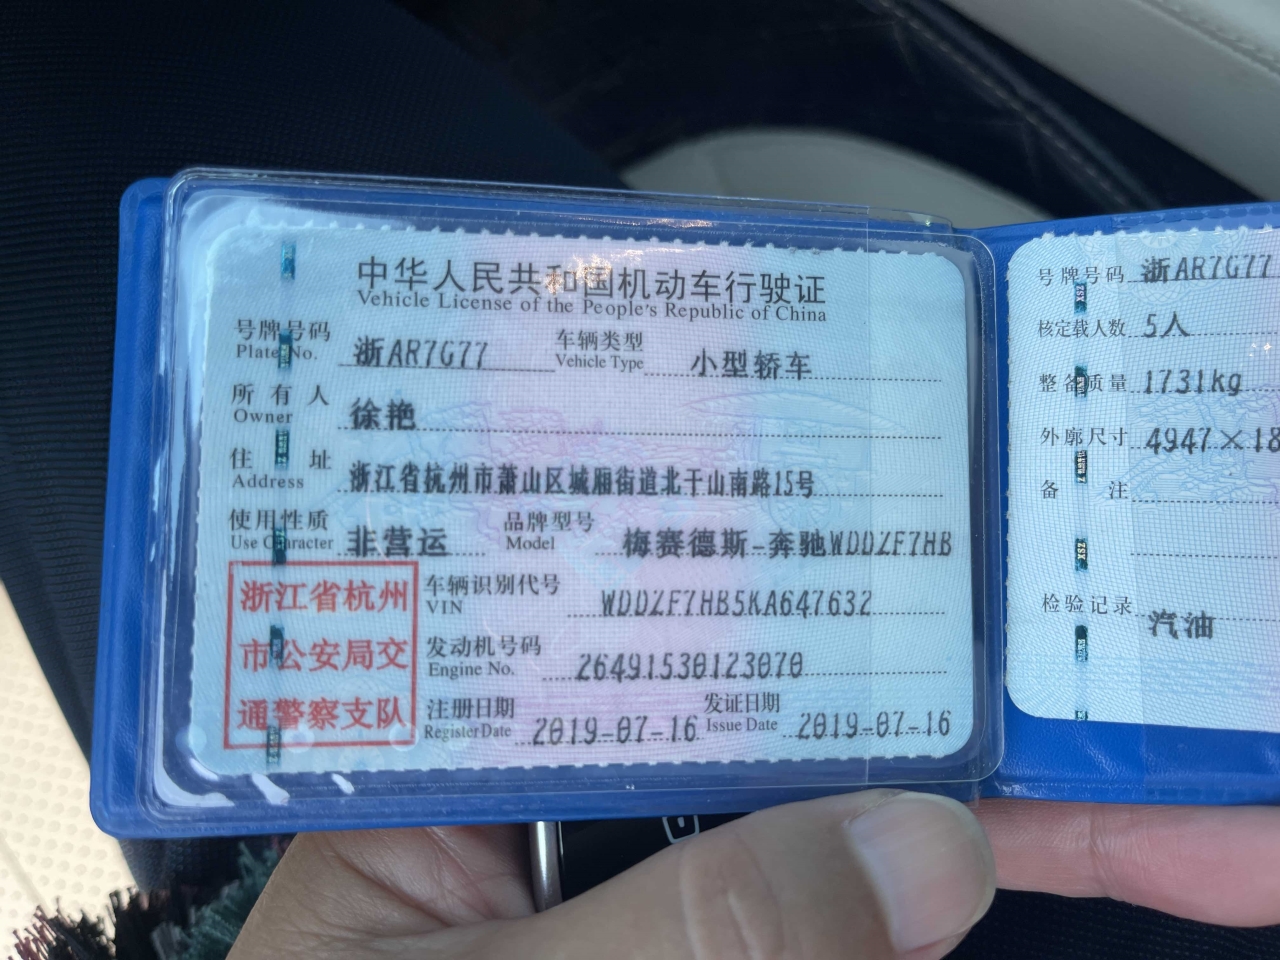 中华人民共和国机动车行驶证
Vehicle License of the People's Republic of China
号牌号码 Plate No. 浙AR7G77 车辆类型 Vehicle Type 小型轿车
所有人 Owner 徐艳
住址 Address 浙江省杭州市萧山区城厢街道北干山南路15号
使用性质 Use Character 非营运 品牌型号 Model 梅赛德斯-奔驰WDDZF7HB
车辆识别代号 VIN WDDZF7HB5KA647632
发动机号码 Engine No. 26491530123070
注册日期 Register Date 2019-07-16 发证日期 Issue Date 2019-07-16
浙江省杭州
市公安局交
通警察支队
号牌号码 浙AR7G77
核定载人数 5人
整备质量 1731kg
外廓尺寸 4947×18
备注
检验记录 汽油